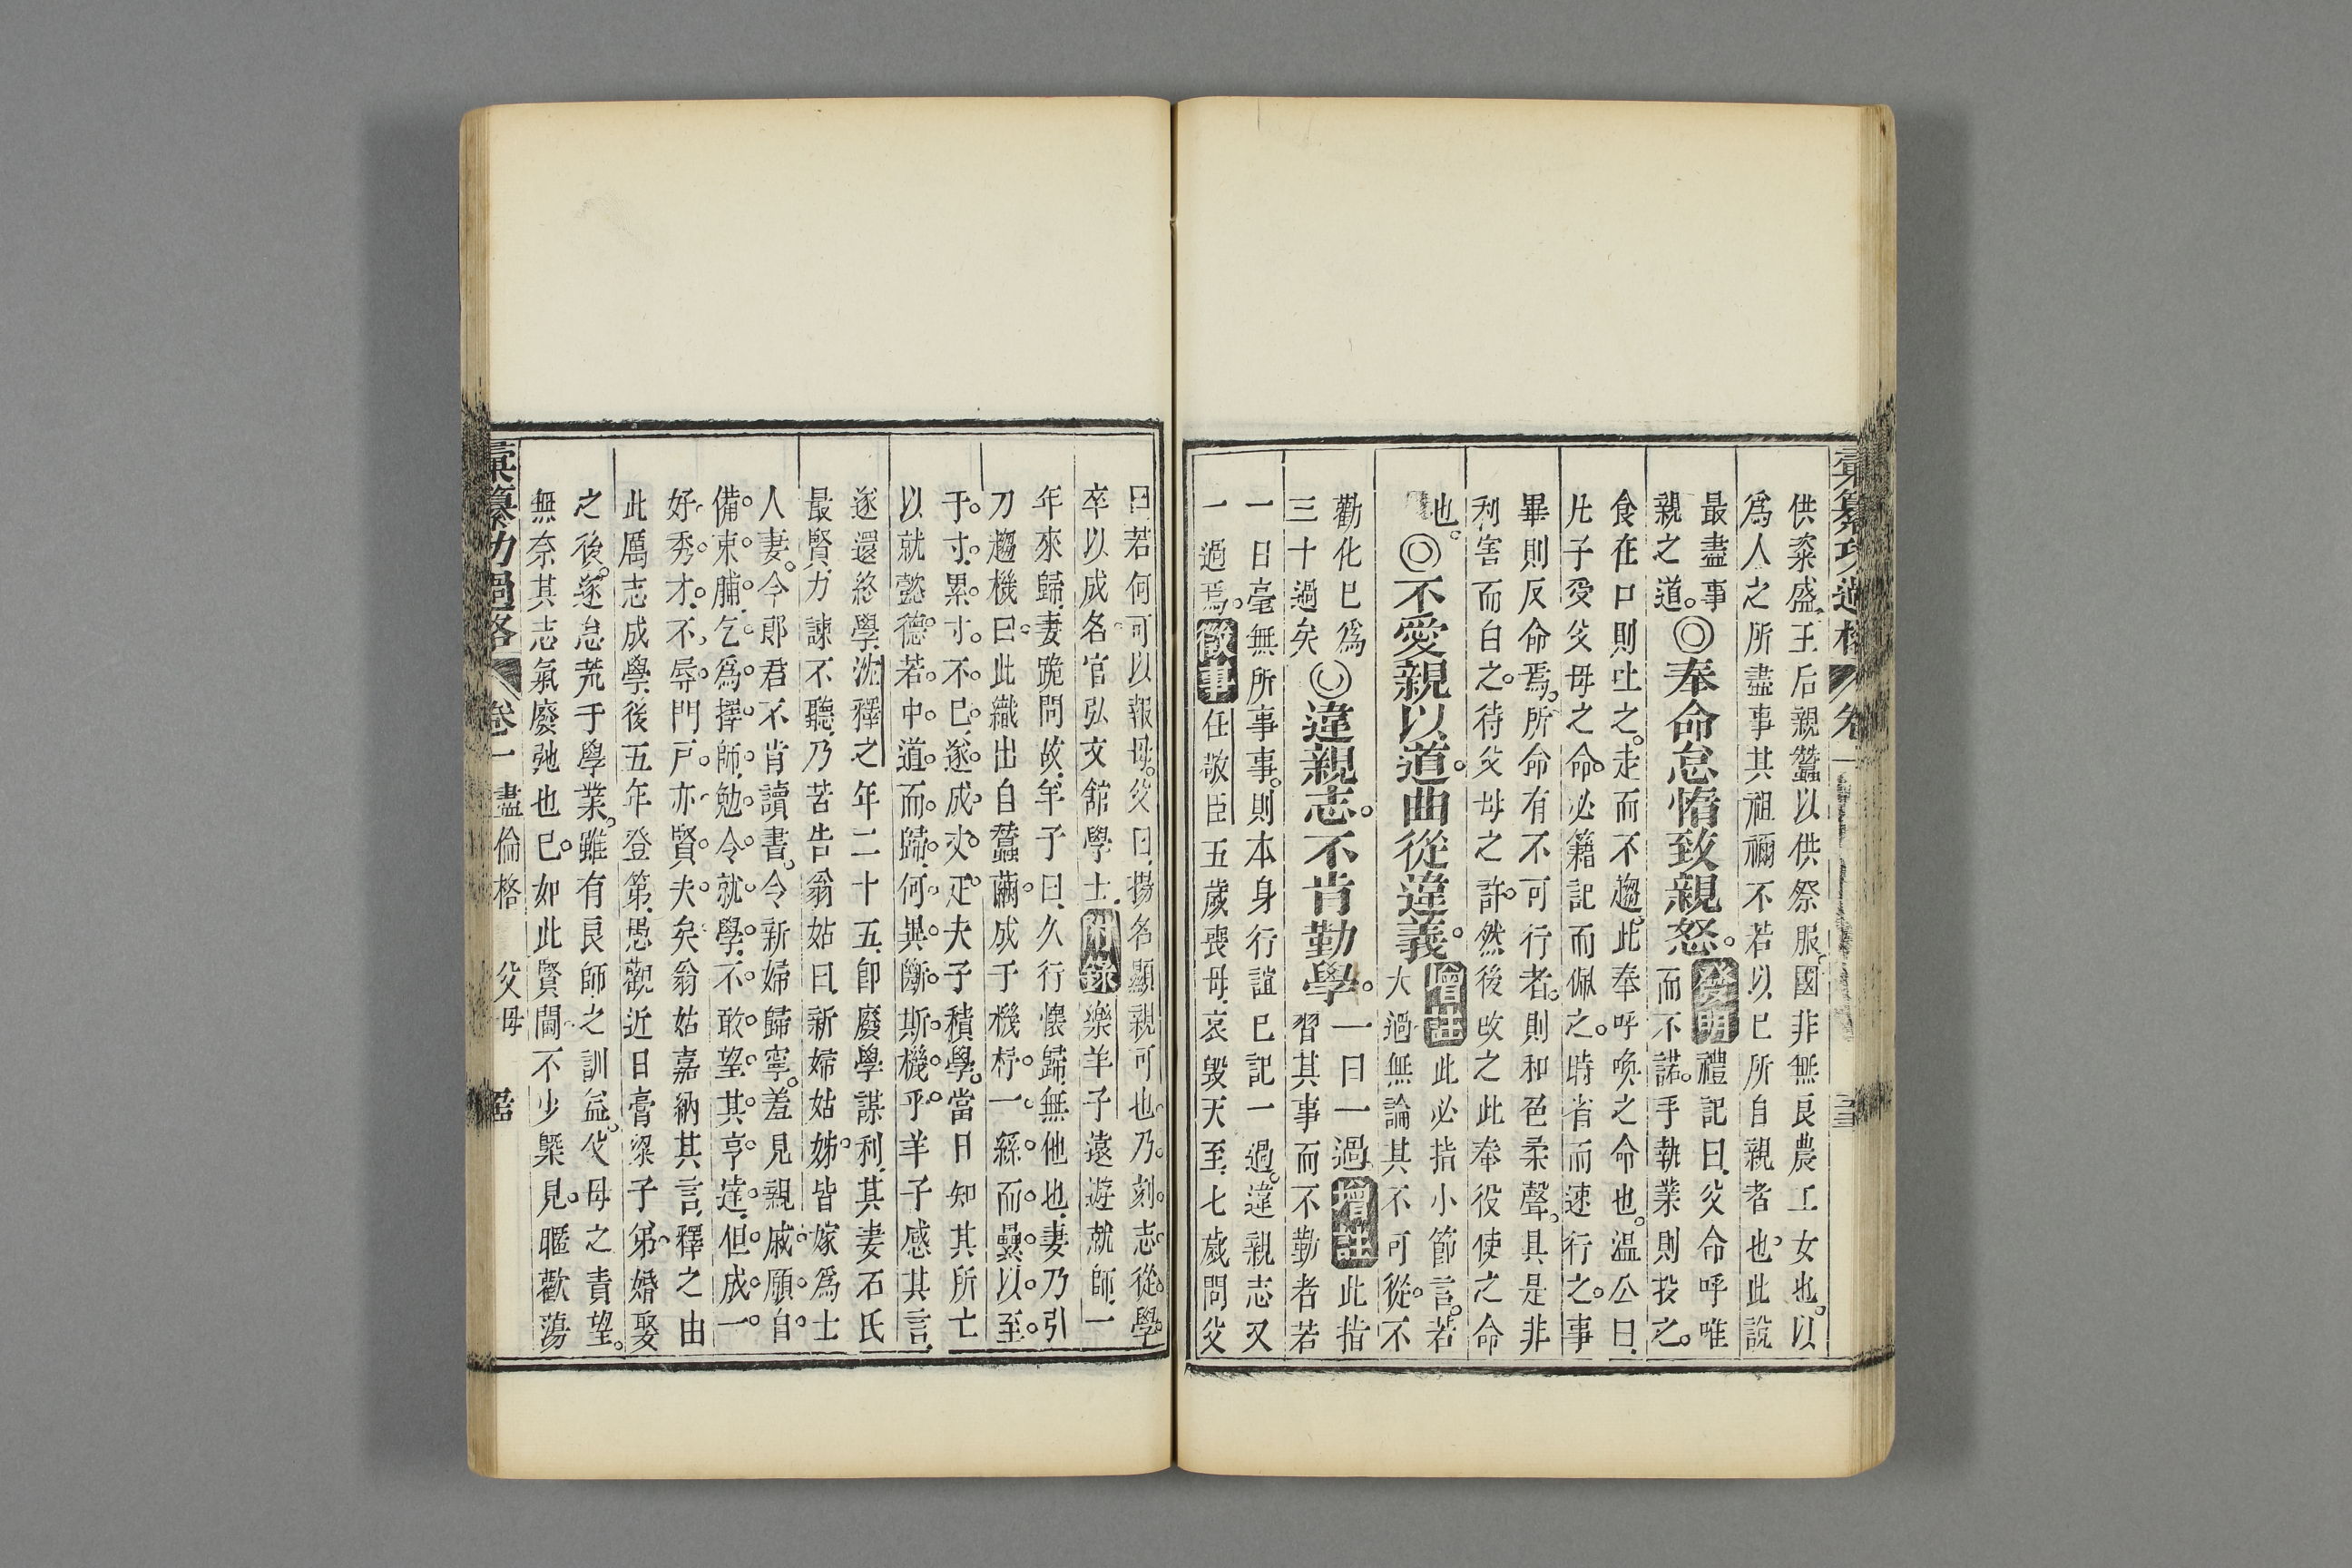 彙纂功過格 卷一
供粢盛王后親蠶以供祭服國非無良農工女也以
爲人之所盡事其祖禰不若以己所自親者也此說
最盡事
親之道◎奉命怠惰致親怒發明禮記曰父命呼唯
而不諾手執業則投之
食在口則吐之走而不趨此奉呼喚之命也温公曰
凡子受父母之命必籍記而佩之時省而速行之事
畢則反命焉所命有不可行者則和色柔聲具是非
利害而白之待父母之許然後改之此奉役使之命
也◎不愛親以道曲從違義增註此必指小節言若
大過無論其不可從不
勸化巳爲
三十過矣◎違親志不肯勤學一日一過增註此指
習其事而不勤者若
一日毫無所事事則本身行誼巳記一過違親志又
一過焉徵事任敬臣五歲喪母哀毀天至七歲問父
曰若何可以報母父曰揚名顯親可也乃刻志從學
卒以成名官弘文舘學士附錄樂羊子遠遊就師一
年來歸妻跪問故羊子曰久行懷歸無他也妻乃引
刀趨機曰此織出自蠶繭成于機杼一絲而纍以至
于寸累寸不已遂成丈疋夫子積學當日知其所亡
以就懿德若中道而歸何異斷斯機乎羊子感其言
遂還終學沈釋之年二十五卽廢學謀利其妻石氏
最賢力諫不聽乃苦告翁姑曰新婦姑姊皆嫁爲士
人妻今郎君不肯讀書令新婦歸寧羞見親戚願自
備束脯乞爲擇師勉令就學不敢望其亨達但成一
好秀才不辱門戸亦賢夫矣翁姑嘉納其言釋之由
此厲志成學後五年登第愚觀近日膏粱子弟婚娶
之後遂怠荒于學業雖有良師之訓益父母之責望
無奈其志氣廢弛也巳如此賢閫不少槩見暱歡蕩
彙纂功過格 卷一 盡倫格 父母